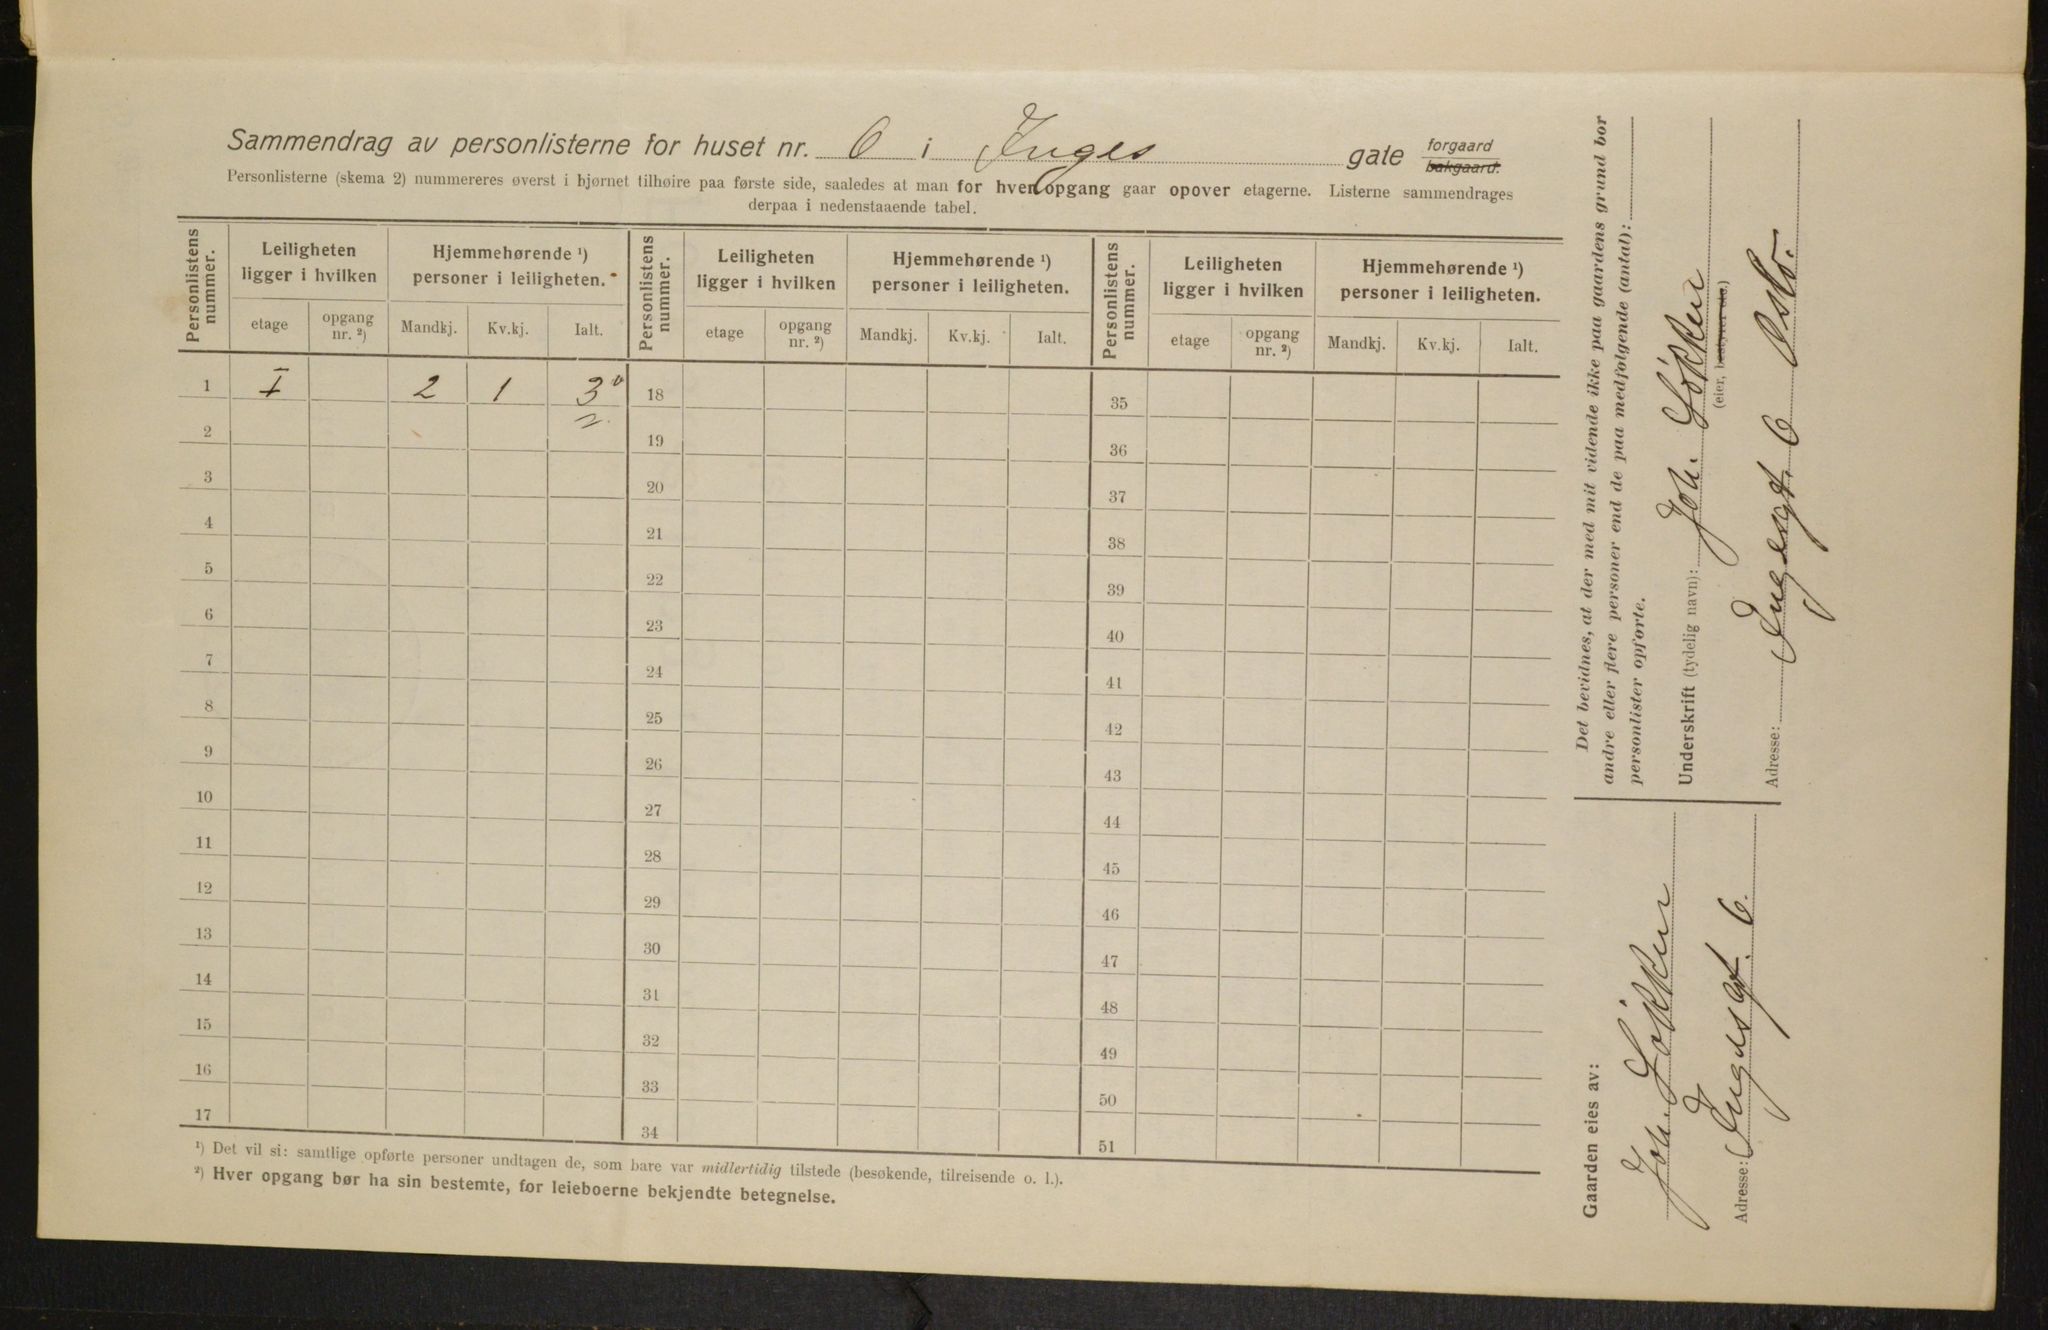 Sammendrag av personlisterne for huset nr. 6 i Inges gate forgaard bakgaard.
Personlisterne (skema 2) nummereres øverst i hjørnet tilhøire paa første side, saaledes at man for hver opgang gaar opover etagerne. Listerne sammendrages
derpaa i nedenstaaende tabel.
Personlistens nummer. Leiligheten ligger i hvilken Hjemmehørende ¹) personer i leiligheten. Personlistens nummer. Leiligheten ligger i hvilken Hjemmehørende ¹) personer i leiligheten. Personlistens nummer. Leiligheten ligger i hvilken Hjemmehørende ¹) personer i leiligheten.
etage opgang nr. ²) Mandkj. Kv.kj. Ialt. etage opgang nr. ²) Mandkj. Kv.kj. Ialt. etage opgang nr. ²) Mandkj. Kv.kj. Ialt.
1 I 2 1 3 18 35
2 19 36
3 20 37
4 21 38
5 22 39
6 23 40
7 24 41
8 25 42
9 26 43
10 27 44
11 28 45
12 29 46
13 30 47
14 31 48
15 32 49
16 33 50
17 34 51
¹) Det vil si: samtlige opførte personer undtagen de, som bare var midlertidig tilstede (besøkende, tilreisende o. l.).
²) Hver opgang bør ha sin bestemte, for leieboerne bekjendte betegnelse.
Det bevidnes, at der med mit vidende ikke paa gaardens grund bor
andre eller flere personer end de paa medfølgende (antal):
personlister opførte.
Underskrift (tydelig navn): Joh. Løkken
(eier, bestyrer etc.)
Adresse: Ingesgt. 6 Oslo.
Gaarden eies av:
Joh. Løkken
Adresse: Ingesgt. 6.